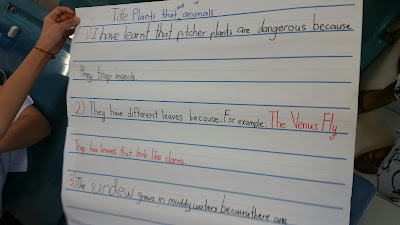 Title: Plants that eat animals
1) I have learnt that pitcher plants are dangerous because
they trap insects.
2) They have different leaves because.. For example: The Venus Fly
They have leaves that look like clams.
3) The sundew grows in muddy waters because there are